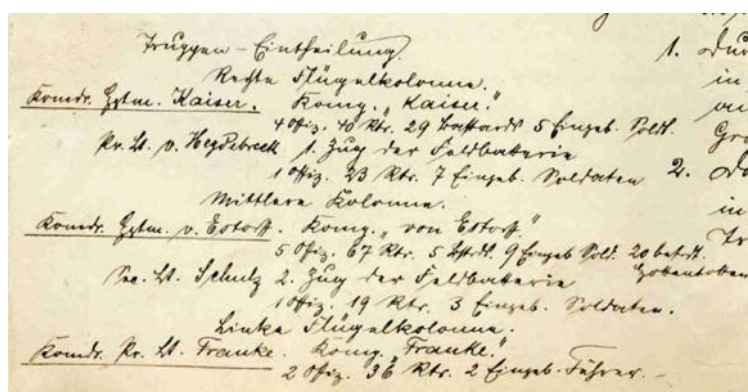 Truppen-Eintheilung.
Rechte Flügelkolonne.
Komdr. Hptm. Kaiser. Komp. „Kaiser."
4 Offiz. 40 Rtr. 29 Bastards 5 Eingeb. Sold.
Pr. Lt. v. Heydebreck 1. Zug der Feldbatterie
1 Offiz. 23 Rtr. 7 Eingeb. Soldaten
Mittlere Kolonne.
Komdr. Hptm. v. Estorff. Komp. „von Estorff."
5 Offiz. 67 Rtr. 5 Bstrds. 9 Eingeb. Sold. 20
Hottentotten
Sec. Lt. Schultz 2. Zug der Feldbatterie
1 Offiz. 19 Rtr. 3 Eingeb. Soldaten.
Linke Flügelkolonne.
Komdr. Pr. Lt. Franke. Komp. „Franke."
2 Offiz. 36 Rtr. 2 Eingeb. Führer. –
1.
in
2.
in